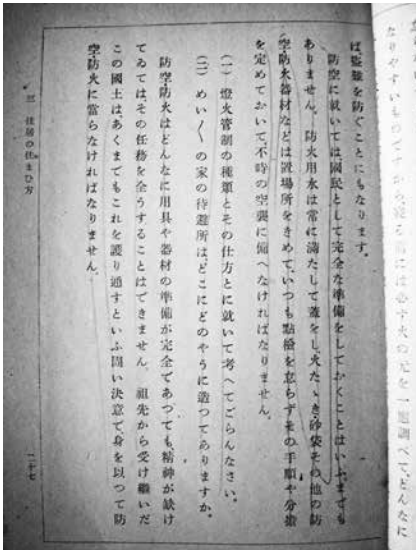 なりやすいものですから、寝る前には必ず火の元を一通調べて、どんなに
ば盜難を防ぐことにもなります。
防空に就いては國民として完全な準備をしておくことはいふまでも
ありません。防火用水は常に滿たして蓋をし、火たゝき・砂袋その他の防
空防火器材などは置場所をきめて、いつも點檢を怠らずその手順や分擔
を定めておいて、不時の空襲に備へなければなりません。
(一) 燈火管制の種類とその仕方とに就いて考へてごらんなさい。
(二) めい〳〵の家の待避所はどこにどのやうに造つてありますか。
防空・防火はどんなに用具や器材の準備が完全であつても、精神が缺け
てゐては、その任務を全うすることはできません。祖先から受け繼いだ
この國土は、あくまでもこれを護り通すといふ固い決意で、身を以つて防
空防火に當らなければなりません。
三 住居の住まひ方
二十七